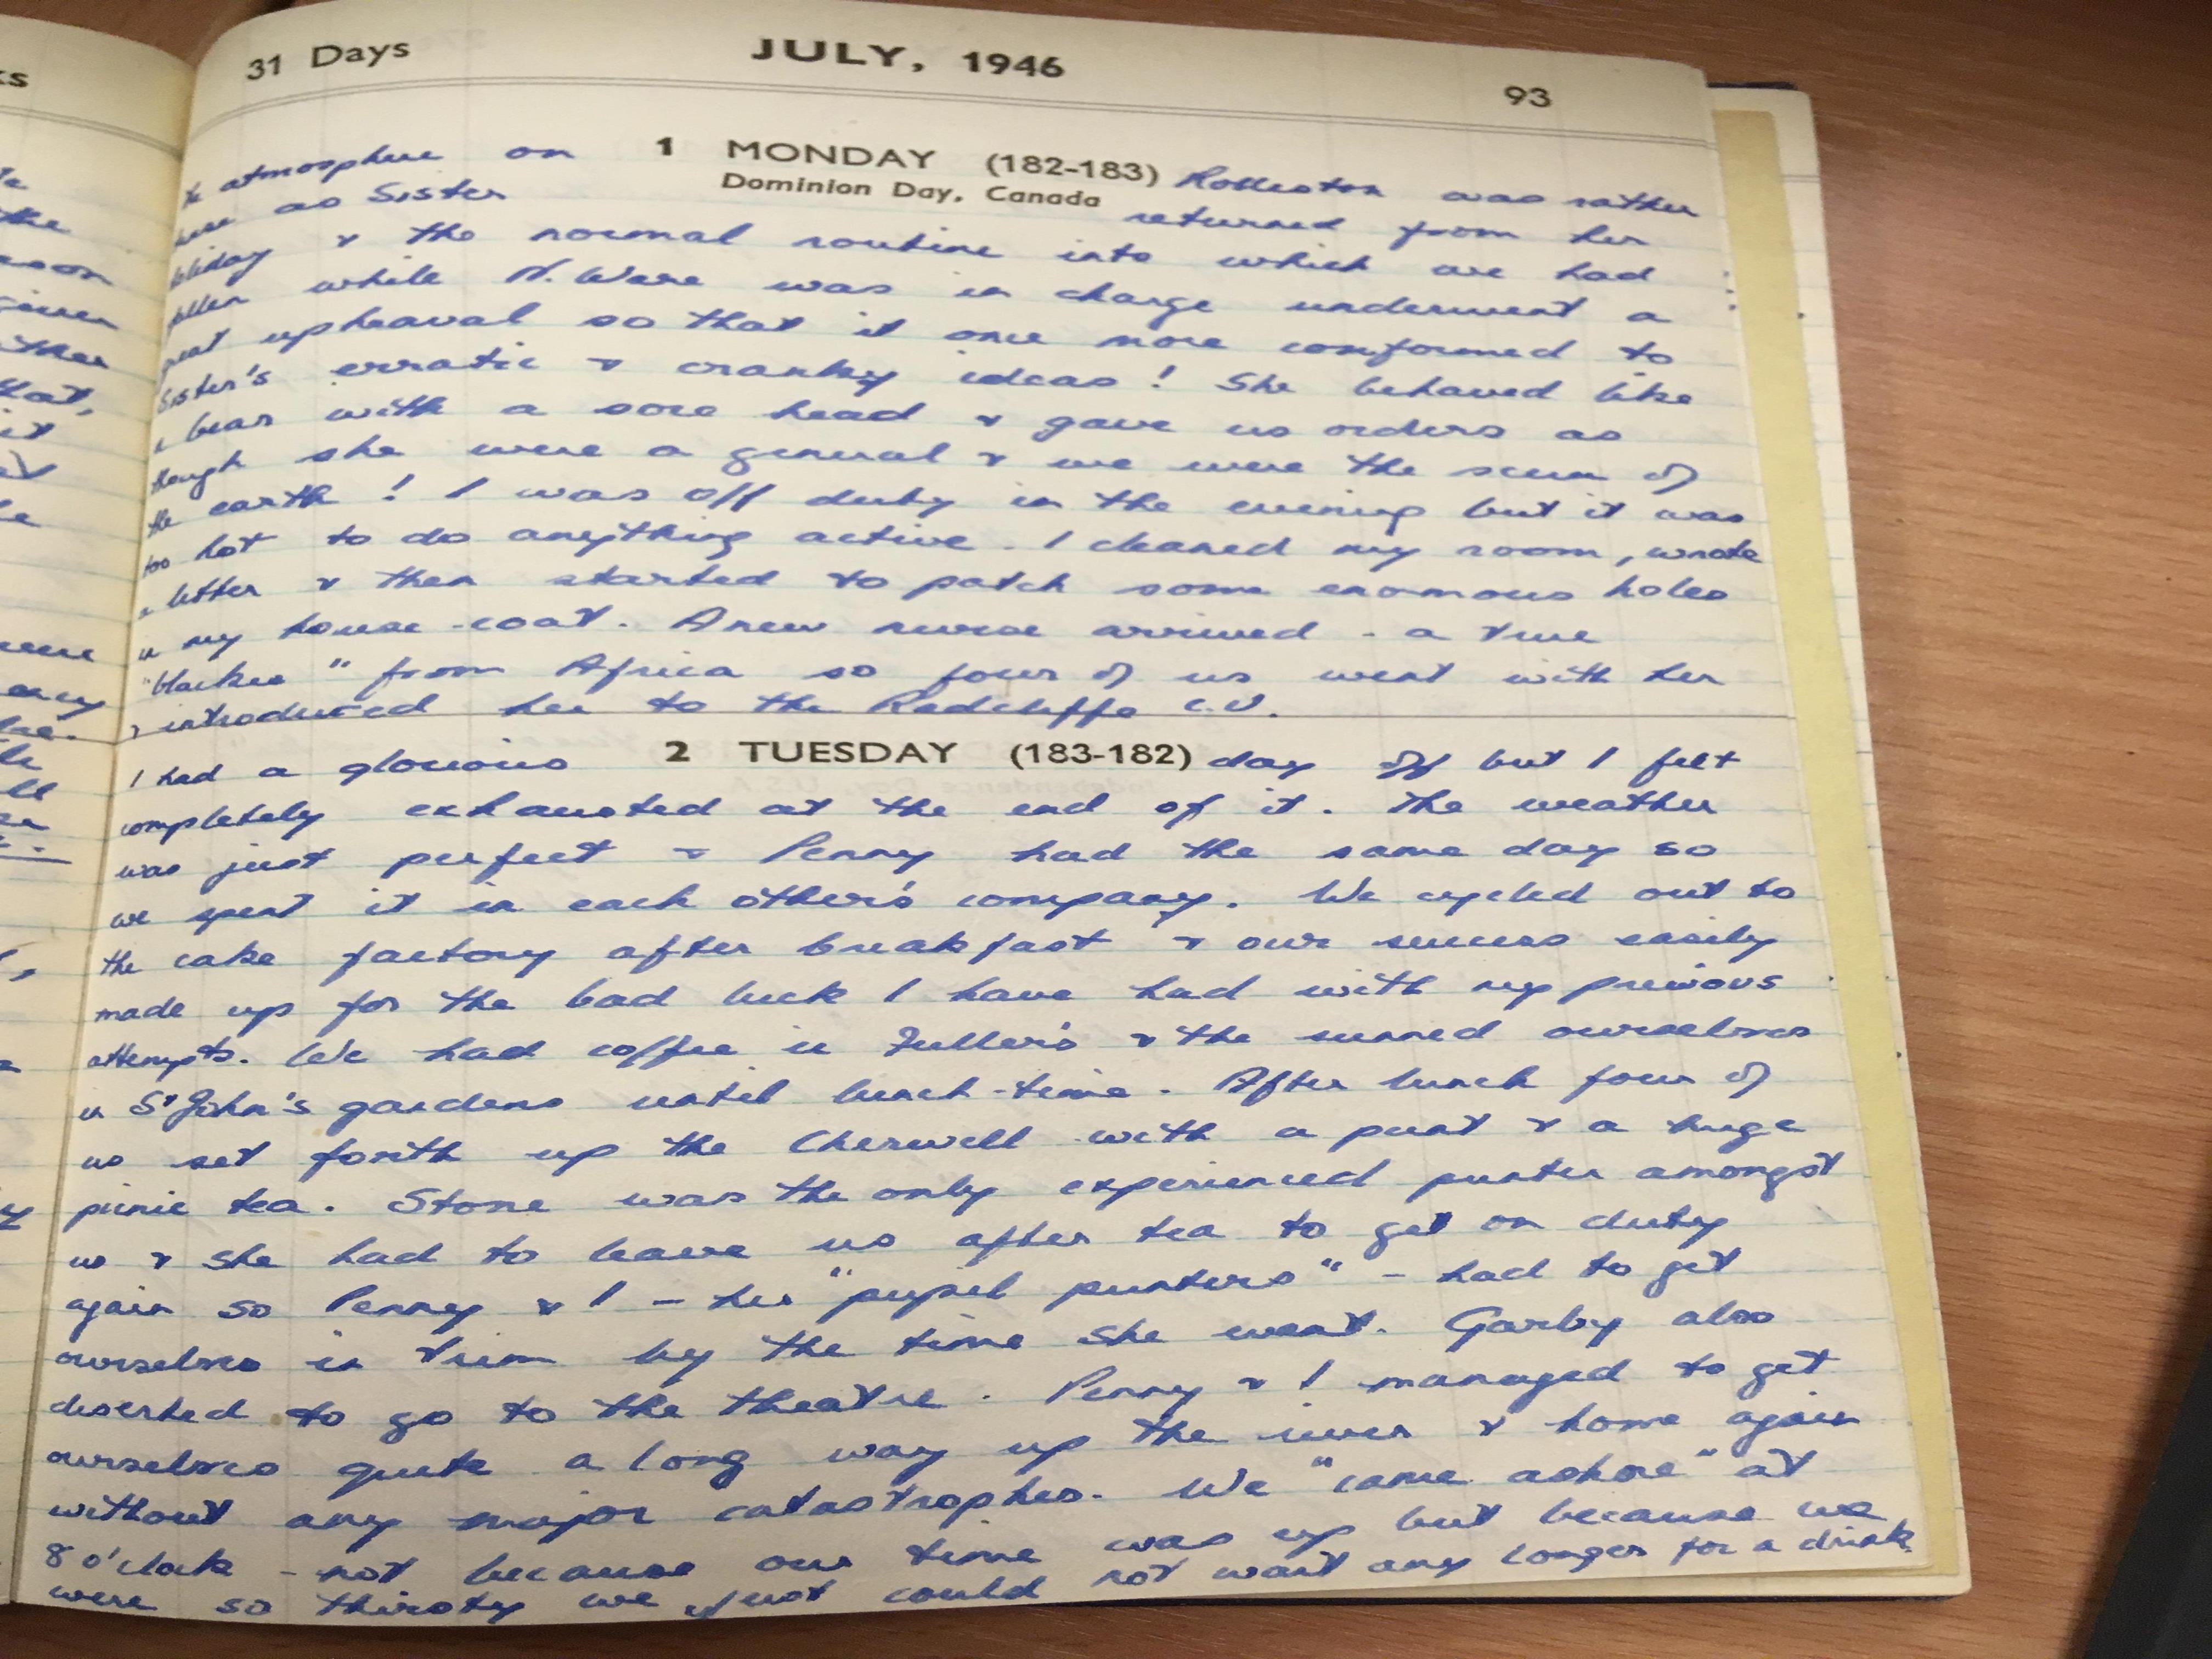 31 Days JULY, 1946 93
1 MONDAY (182-183)
Dominion Day, Canada
The atmosphere on Rolleston was rather
tense as Sister returned from her
holiday & the normal routine into which we had
fallen while N. Ware was in charge underwent a
great upheaval so that it once more conformed to
Sister's erratic & cranky ideas! She behaved like
a bear with a sore head & gave us orders as
though she were a general & we were the scum of
the earth! I was off duty in the evening but it was
too hot to do anything active. I cleaned my room, wrote
a letter & then started to patch some enormous holes
in my house-coat. A new nurse arrived - a true
"blackee" from Africa so four of us went with her
& introduced her to the Radcliffe C.U.
2 TUESDAY (183-182)
I had a glorious day off but I felt
completely exhausted at the end of it. The weather
was just perfect & Penny had the same day so
we spent it in each other's company. We cycled out to
the cake factory after breakfast & our success easily
made up for the bad luck I have had with my previous
attempts. We had coffee in Fuller's & the sunned ourselves
in St John's gardens until lunch-time. After lunch four of
us set forth up the Cherwell with a punt & a huge
picnic tea. Stone was the only experienced punter amongst
us & she had to leave us after tea to get on duty
again so Penny & I - her "pupil punters" - had to get
ourselves in trim by the time she went. Garby also
deserted to go to the theatre. Penny & I managed to get
ourselves quite a long way up the river & home again
without any major catastrophes. We "came ashore" at
8 o'clock - not because our time was up but because we
were so thirsty we just could not wait any longer for a drink.